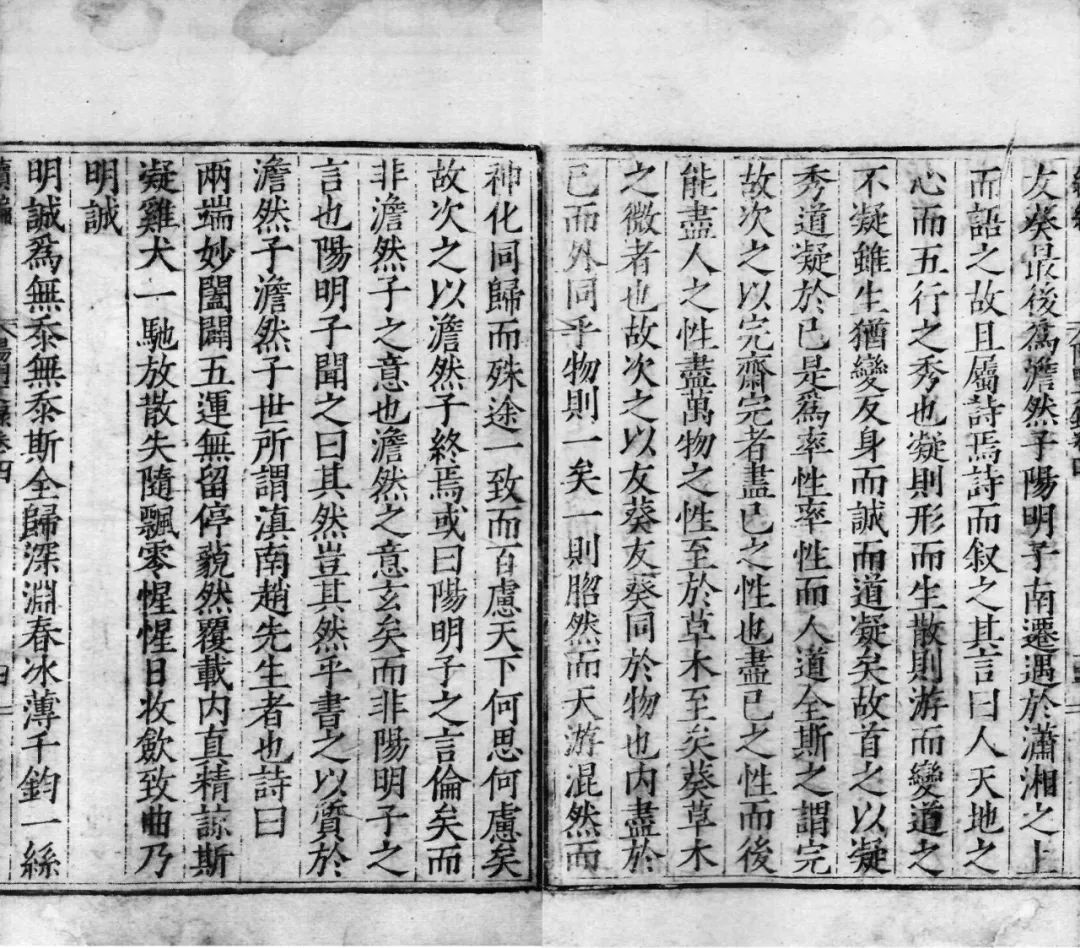 友葵最後爲澹然子陽明子南遷遇於瀟湘之上
而語之故且屬詩焉詩而叙之其言曰人天地之
心而五行之秀也凝則形而生散則游而變道之
不凝雖生猶變反身而誠而道凝矣故首之以凝
秀道凝於已是爲率性率性而人道全斯之謂完
故次之以完齋完者盡已之性也盡已之性而後
能盡人之性盡萬物之性至於草木至矣葵草木
之微者也故次之以友葵友葵同於物也内盡於
已而外同乎物則一矣一則脗然而天游混然而
神化同歸而殊途一致而百慮天下何思何慮矣
故次之以澹然子終焉或曰陽明子之言倫矣而
非澹然子之意也澹然之意玄矣而非陽明子之
言也陽明子聞之曰其然豈其然乎書之以質於
澹然子澹然子世所謂滇南趙先生者也詩曰
兩端妙闔闢五運無留停藐然覆載内真精諒斯
凝雞犬一馳放散失隨飄零惺惺日收歛致曲乃
明誠
明誠爲無忝無忝斯全歸深淵春冰薄千鈞一絲